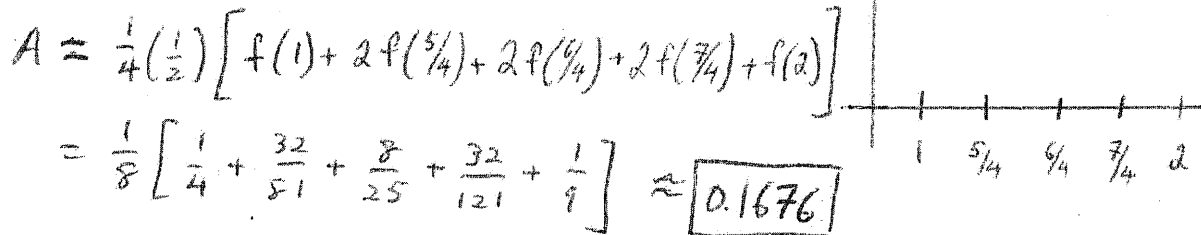 A ≈ 1/4 (1/2) [ f(1) + 2f(5/4) + 2f(6/4) + 2f(7/4) + f(2) ]
= 1/8 [ 1/4 + 32/81 + 8/25 + 32/121 + 1/9 ] ≈ 0.1676
1 5/4 6/4 7/4 2